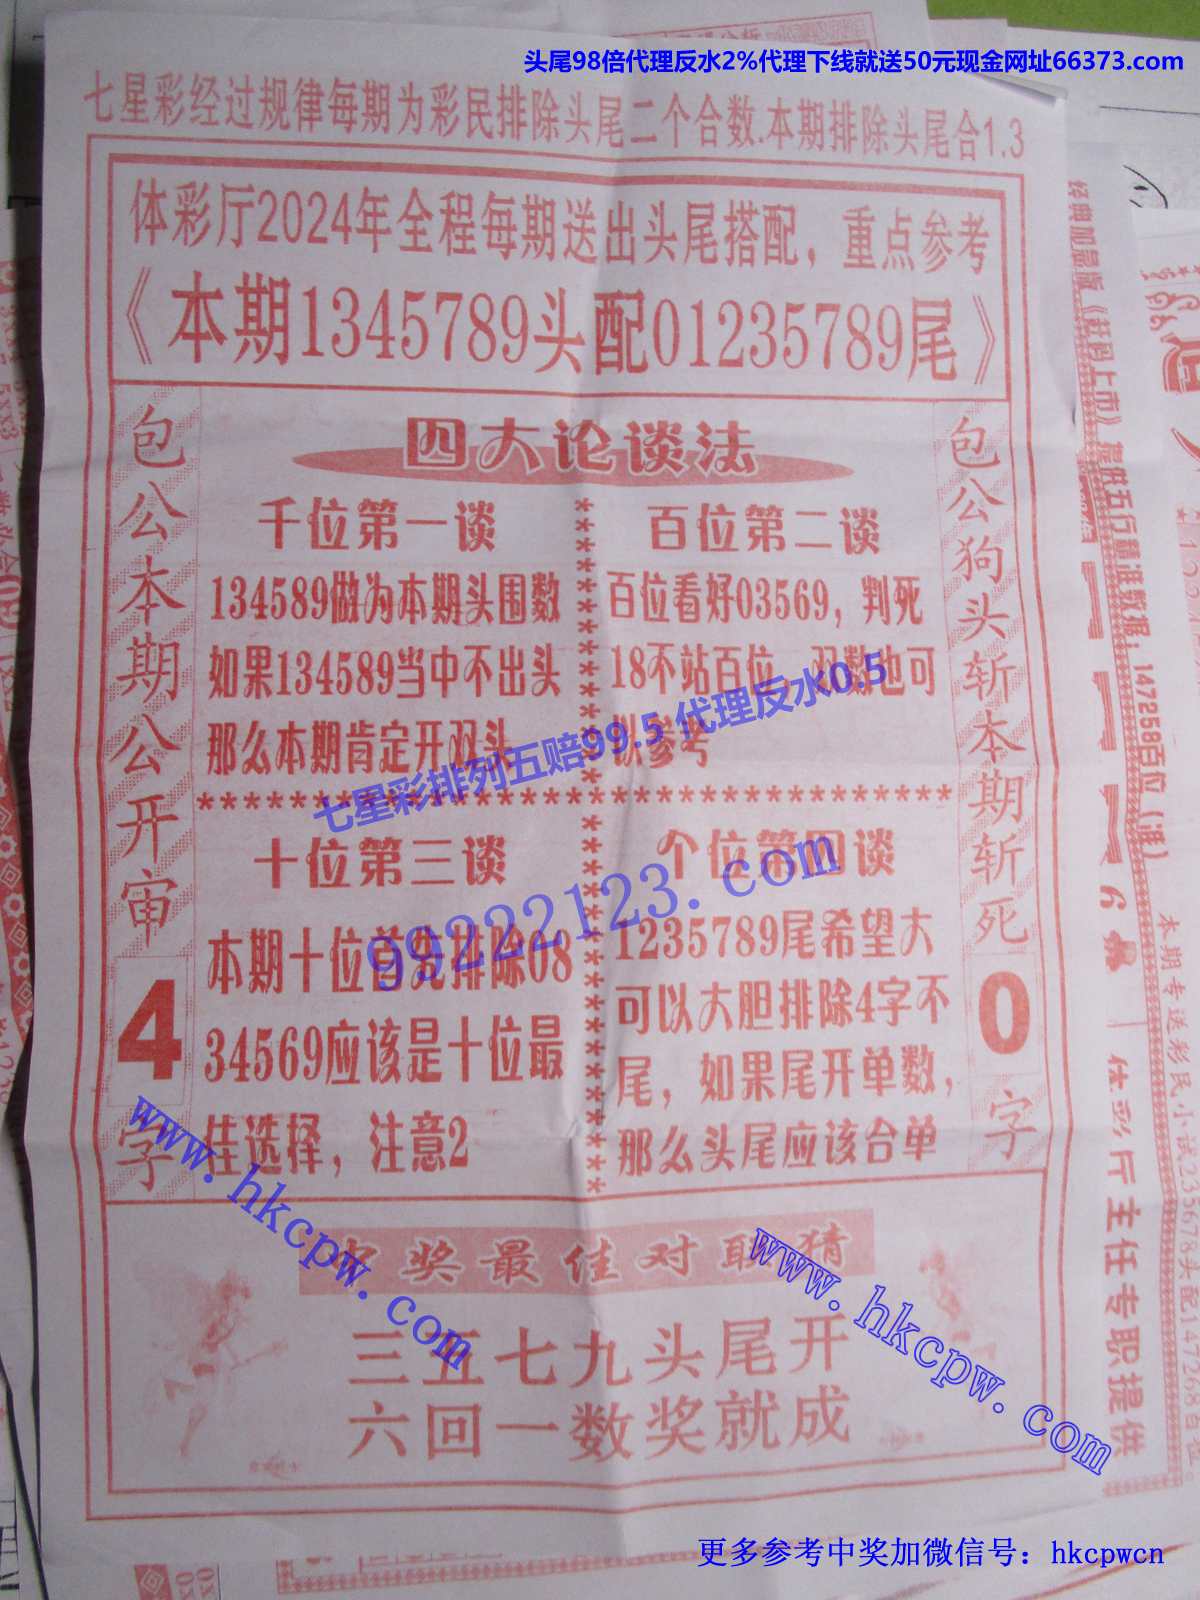 头尾98倍代理反水2%代理下线就送50元现金网址66373.com
七星彩经过规律每期为彩民排除头尾二个合数.本期排除头尾合1.3
体彩厅2024年全程每期送出头尾搭配，重点参考
《本期1345789头配01235789尾》
四大论谈法
包公本期公开审4字
千位第一谈
134589做为本期头围数
如果134589当中不出头
那么本期肯定开双头
百位第二谈
百位看好03569，判死
18不站百位，双数也可
以参考
七星彩排列五赔99.5 代理反水0.5
99222123.com
十位第三谈
本期十位首先排除08
34569应该是十位最
佳选择，注意2
个位第四谈
1235789尾希望大
可以大胆排除4字不
尾，如果尾开单数，
那么头尾应该合单
包公狗头斩本期斩死0字
www.hkcpw.com
www.hkcpw.com
奖最佳对联猜
三五七九头尾开
六回一数奖就成
体彩厅主任专职提供
更多参考中奖加微信号：hkcpwcn